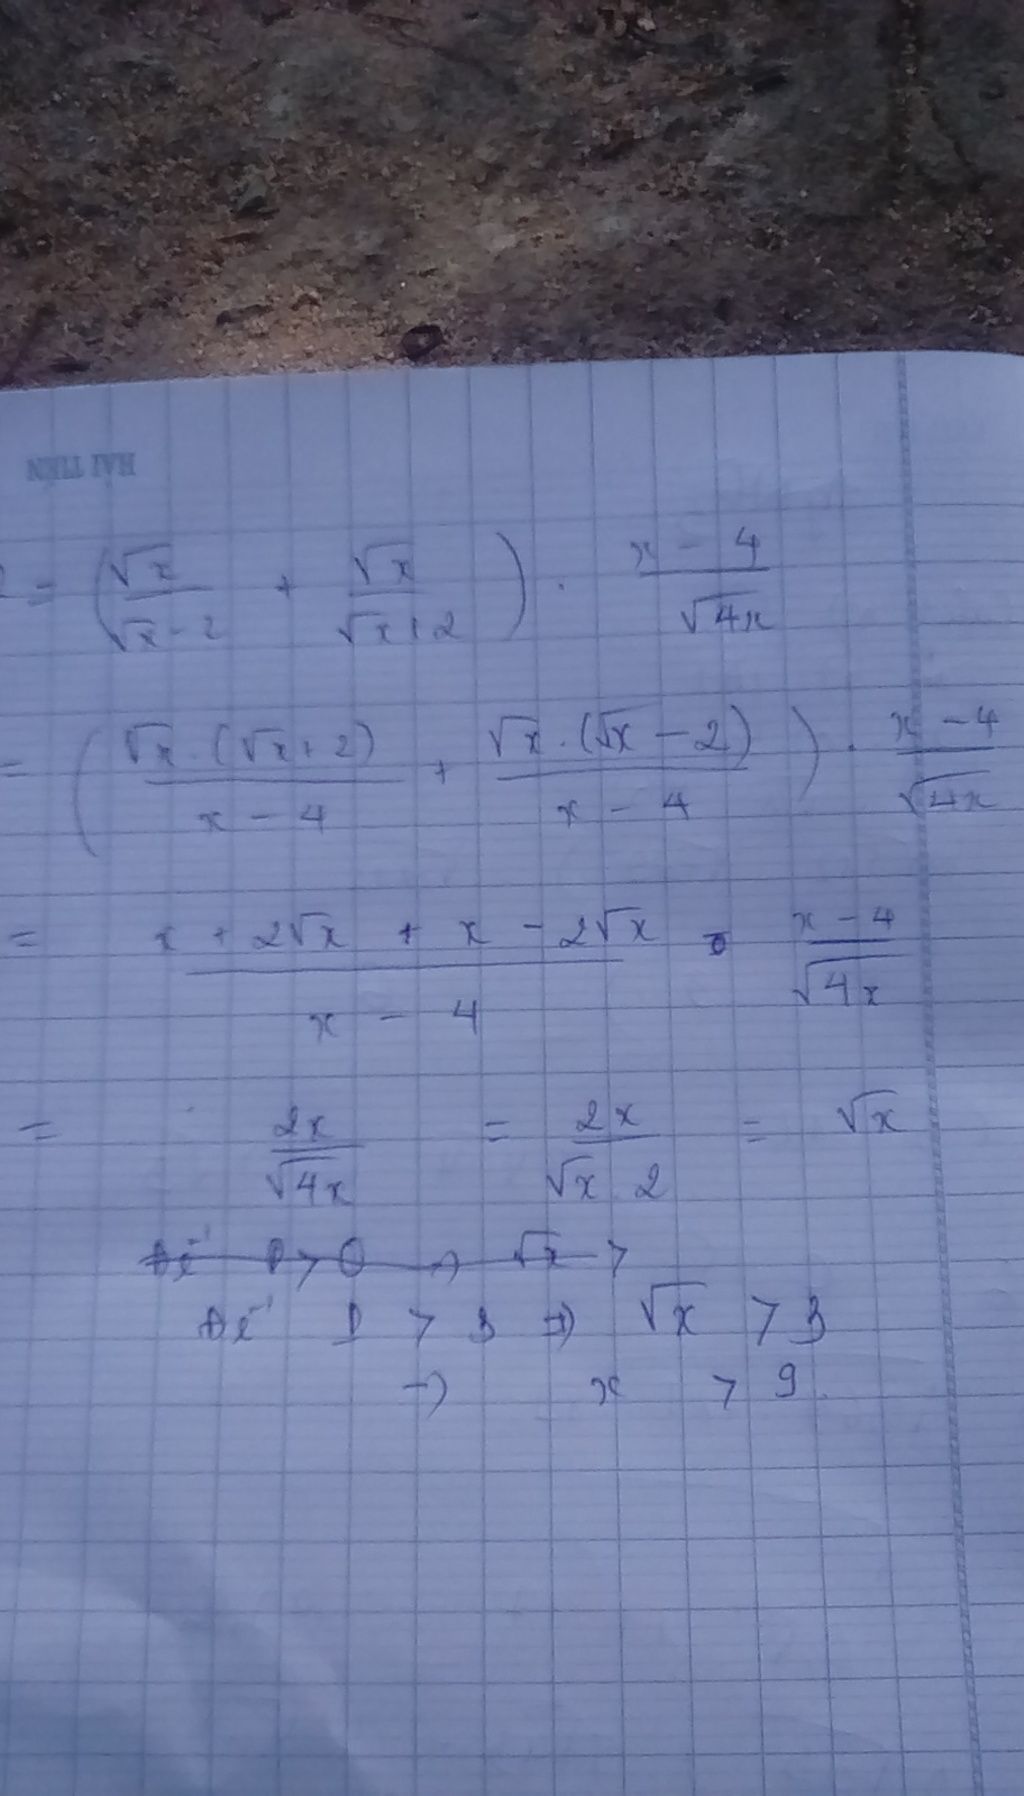 HẢI TIẾN
= (√x/(√x - 2) + √x/(√x + 2)) . (x - 4)/√4x
= (√x . (√x + 2)/(x - 4) + √x . (√x - 2)/(x - 4)) . (x - 4)/√4x
= (x + 2√x + x - 2√x)/(x - 4) . (x - 4)/√4x
= 2x/√4x = 2x/(√x . 2) = √x
Để P > 0 → √x >
Để P > 3 => √x > 3
→ x > 9.